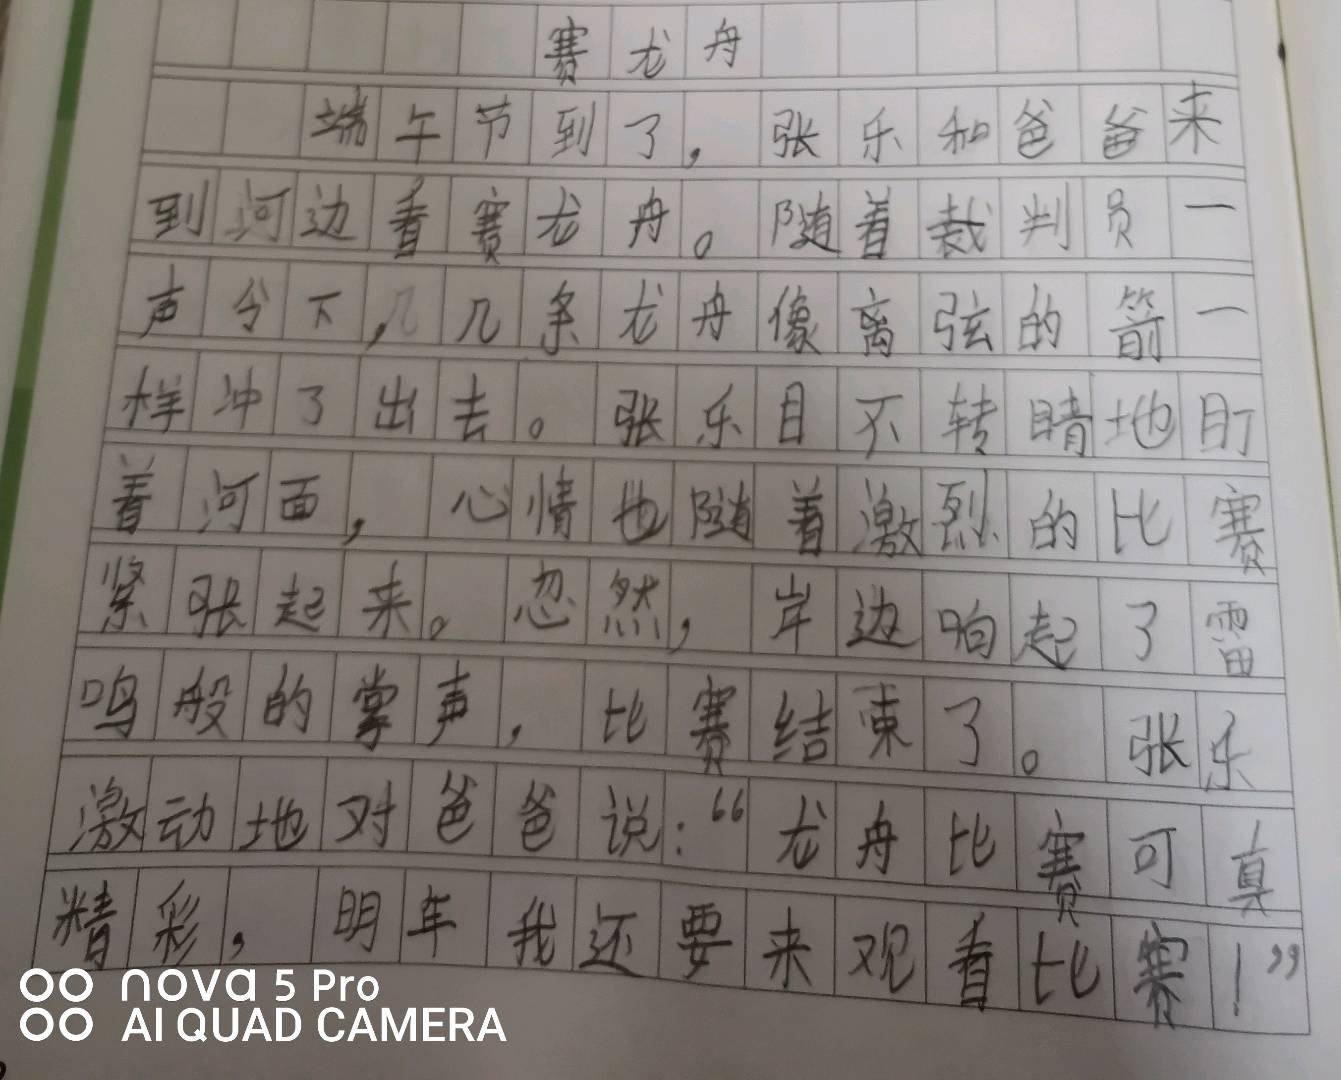 赛龙舟
端午节到了，张乐和爸爸来
到河边看赛龙舟。随着裁判员一
声令下，几几条龙舟像离弦的箭一
样冲了出去。张乐目不转睛地盯
着河面，心情也随着激烈的比赛
紧张起来。忽然，岸边响起了雷
鸣般的掌声，比赛结束了。张乐
激动地对爸爸说：“龙舟比赛可真
精彩，明年我还要来观看比赛！”
nova 5 Pro
AI QUAD CAMERA